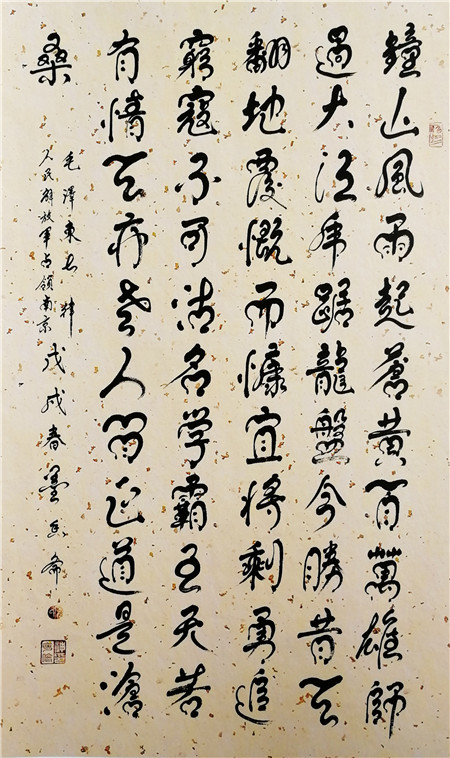 鐘山風雨起蒼黃百萬雄師
過大江虎踞龍盤今勝昔天
翻地覆慨而慷宜將剩勇追
窮寇不可沽名学霸王天若
有情天亦老人間正道是滄
桑
毛澤東七律
人民解放軍占領南京 戊戌春墨